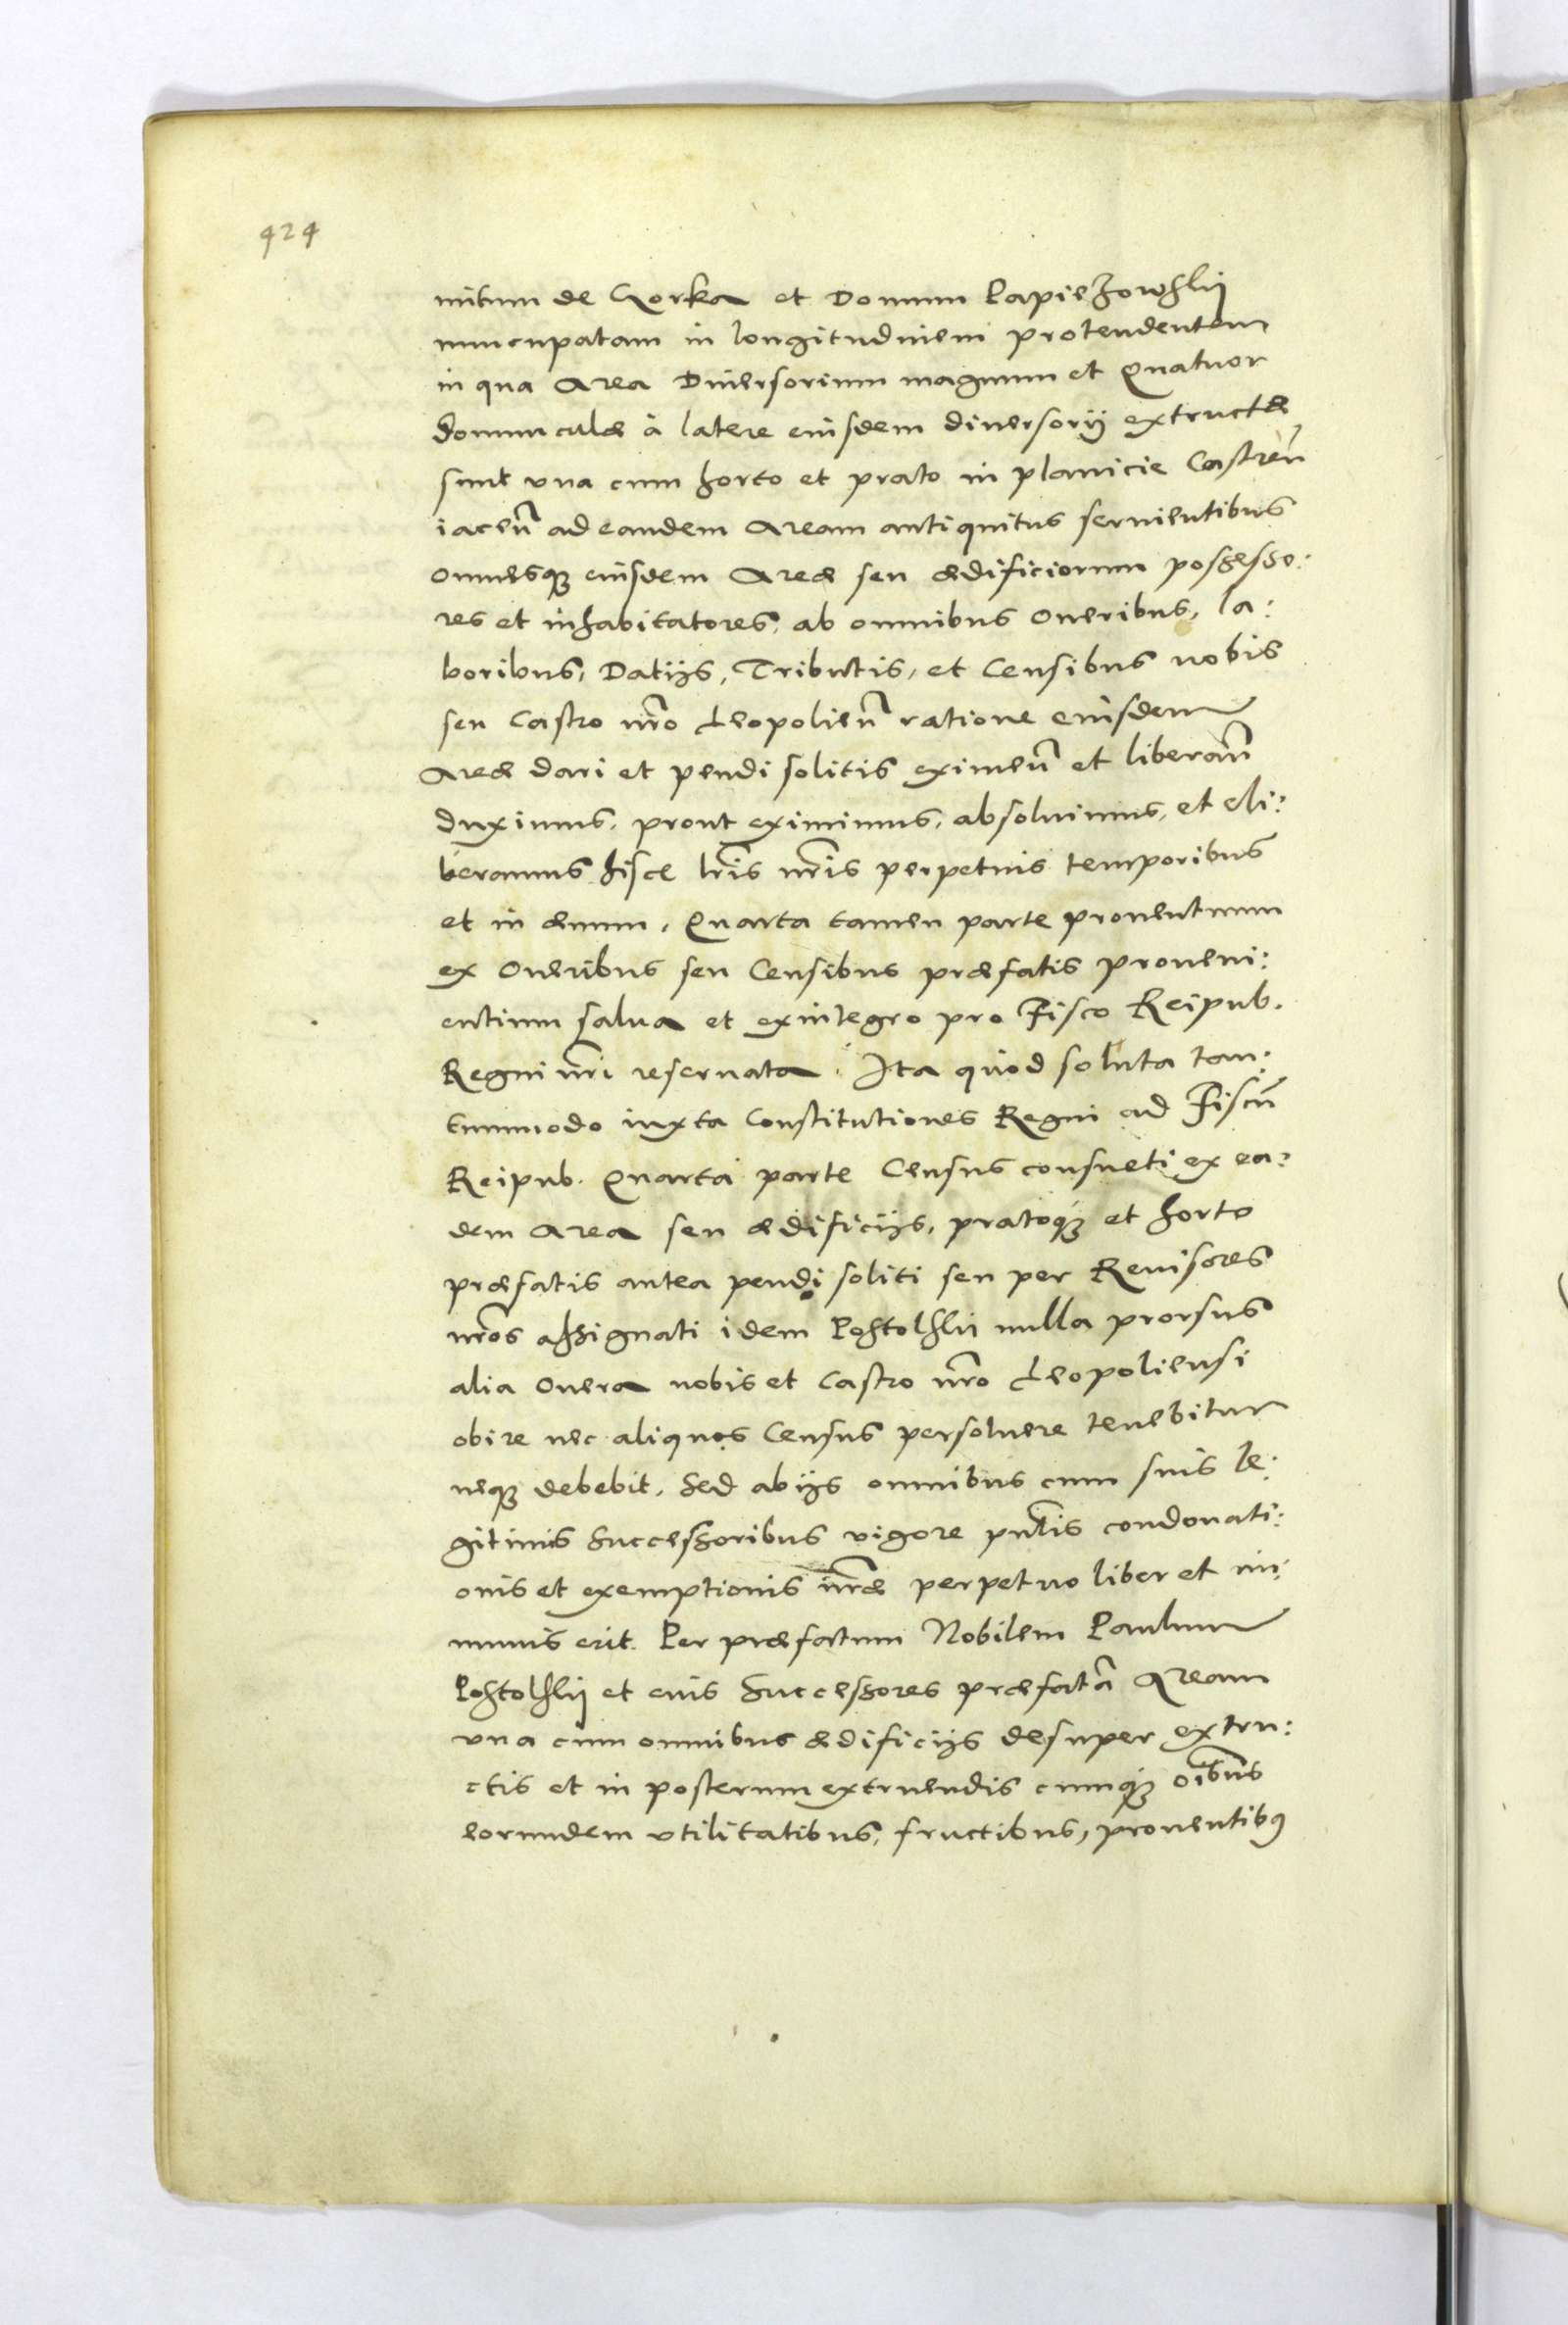 424
mitum de Gorka et Domum Papieżowſkij
nuncupatam in longitudinem protendentem
in qua Area Diuersorium magnum et Quatuor
domunculæ à latere eiusdem diuersorij extructæ
sunt vna cum horto et prato in planicie Castreñ
iaceñ ad eandem Aream antiquitus seruientibus
omnesqꝫ eiusdem Areæ seu ædificiorum possesso:
res et inhabitatores, ab omnibus Oneribus, la:
boribus, Datijs, Tributis, et Censibus nobis
seu Castro nr̃o Leopolieñ ratione eiusdem
Areæ dari et pendi solitis eximeñ et liberañ
duximus, prout eximimus, absoluimus, et eli:
beramus hisce lr̃is nr̃is perpetuis temporibus
et in æuum, Quarta tamen parte prouentuum
ex Oneribus seu Censibus præfatis proueni:
entium salua et exintegro pro Fisco Reipub.
Regni nr̃i reseruata. Ita quod soluta tan:
tummodo iuxta Constitutiones Regni ad Fiscũ
Reipub. Quarta parte Census consueti ex ea:
dem Area seu ædificijs, pratoqꝫ et horto
præfatis antea pendi soliti seu per Reuisores
nr̃os assignati idem Postolſkii nulla prorsus
alia Onera nobis et Castro nr̃o Leopoliensi
obire nec aliquos Census persoluere tenebitur
neqꝫ debebit, Sed ab ijs omnibus cum suis le:
gitimis Successoribus vigore pñtis condonati:
onis et exemptionis nr̃æ perpetuo liber et im:
munis erit. Per præfatum Nobilem Paulum
Postolſkij et eius Successores præfatã Aream
vna cum omnibus ædificijs desuper extru:
ctis et in posterum extruendis cumqꝫ oĩbus
eorundem vtilitatibus, fructibus, prouentibꝰ